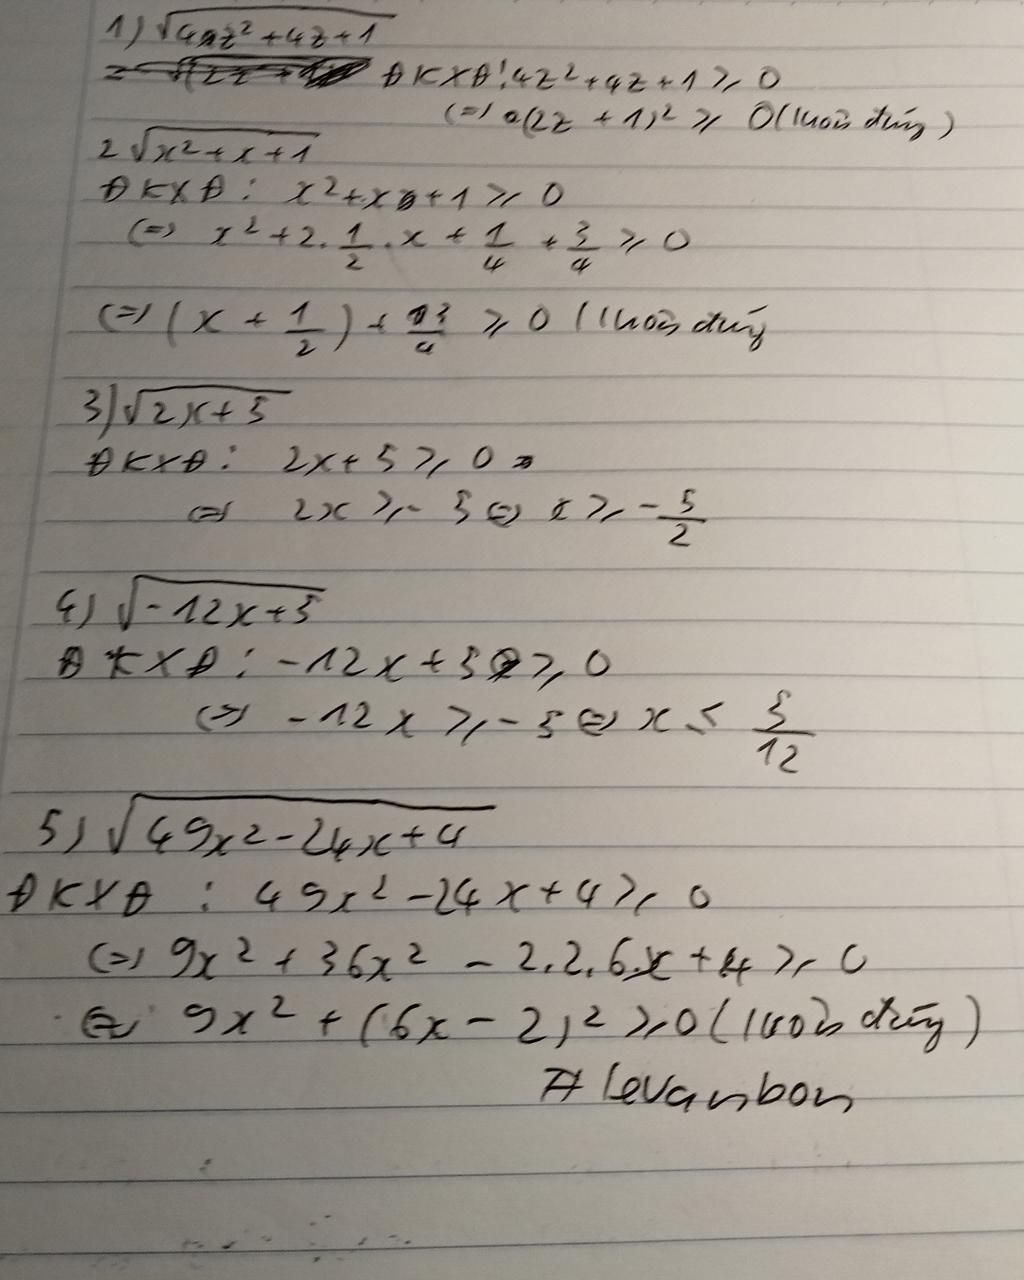 1) √4z²+4z+1
ĐKXĐ: 4z²+4z+1 ⩾ 0
(=) (2z + 1)² ⩾ 0 (luôn đúng)
2 √x²+x+1
ĐKXĐ: x²+x+1 ⩾ 0
(=) x²+2.1/2.x + 1/4 + 3/4 ⩾ 0
(=) (x + 1/2) + 3/4 ⩾ 0 (luôn đúng
3) √2x+5
ĐKXĐ: 2x+5 ⩾ 0
(=) 2x ⩾ -5 (=) x ⩾ -5/2
4) √-12x+5
ĐKXĐ: -12x+5 ⩾ 0
(=) -12x ⩾ -5 (=) x ≤ 5/12
5) √49x²-24x+4
ĐKXĐ: 49x²-24x+4 ⩾ 0
(=) 9x² + 36x² - 2.2.6x + 4 ⩾ 0
(=) 9x² + (6x - 2)² ⩾ 0 (luôn đúng)
# levanbon